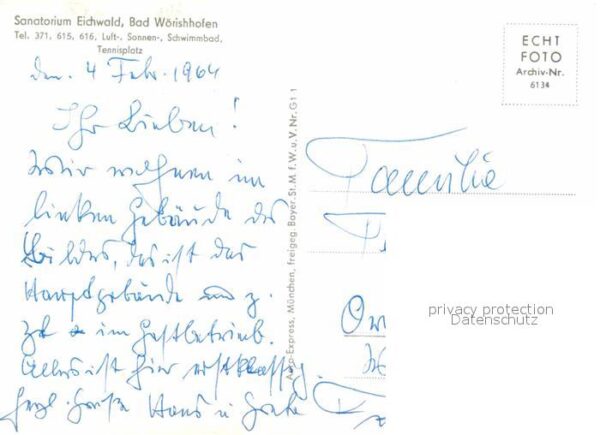 Sanatorium Eichwald, Bad Wörishhofen
Tel. 371, 615, 616, Luft-, Sonnen-, Schwimmbad,
Tennisplatz
den. 4 Febr. 1964
Ihr Lieben!
Wir wohnen im
linken Gebäude des
Bildes, das ist das
Hauptgebäude und z.
Zt im Gastbetrieb.
Alles ist hier erstklassig
Herzl. Grüße Hans u Grete
Auto-Express, München, freigeg. Bayer. St. M. f. W. u. V. Nr. G 1 1
ECHT
FOTO
Archiv-Nr.
6134
Familie
privacy protection
Datenschutz